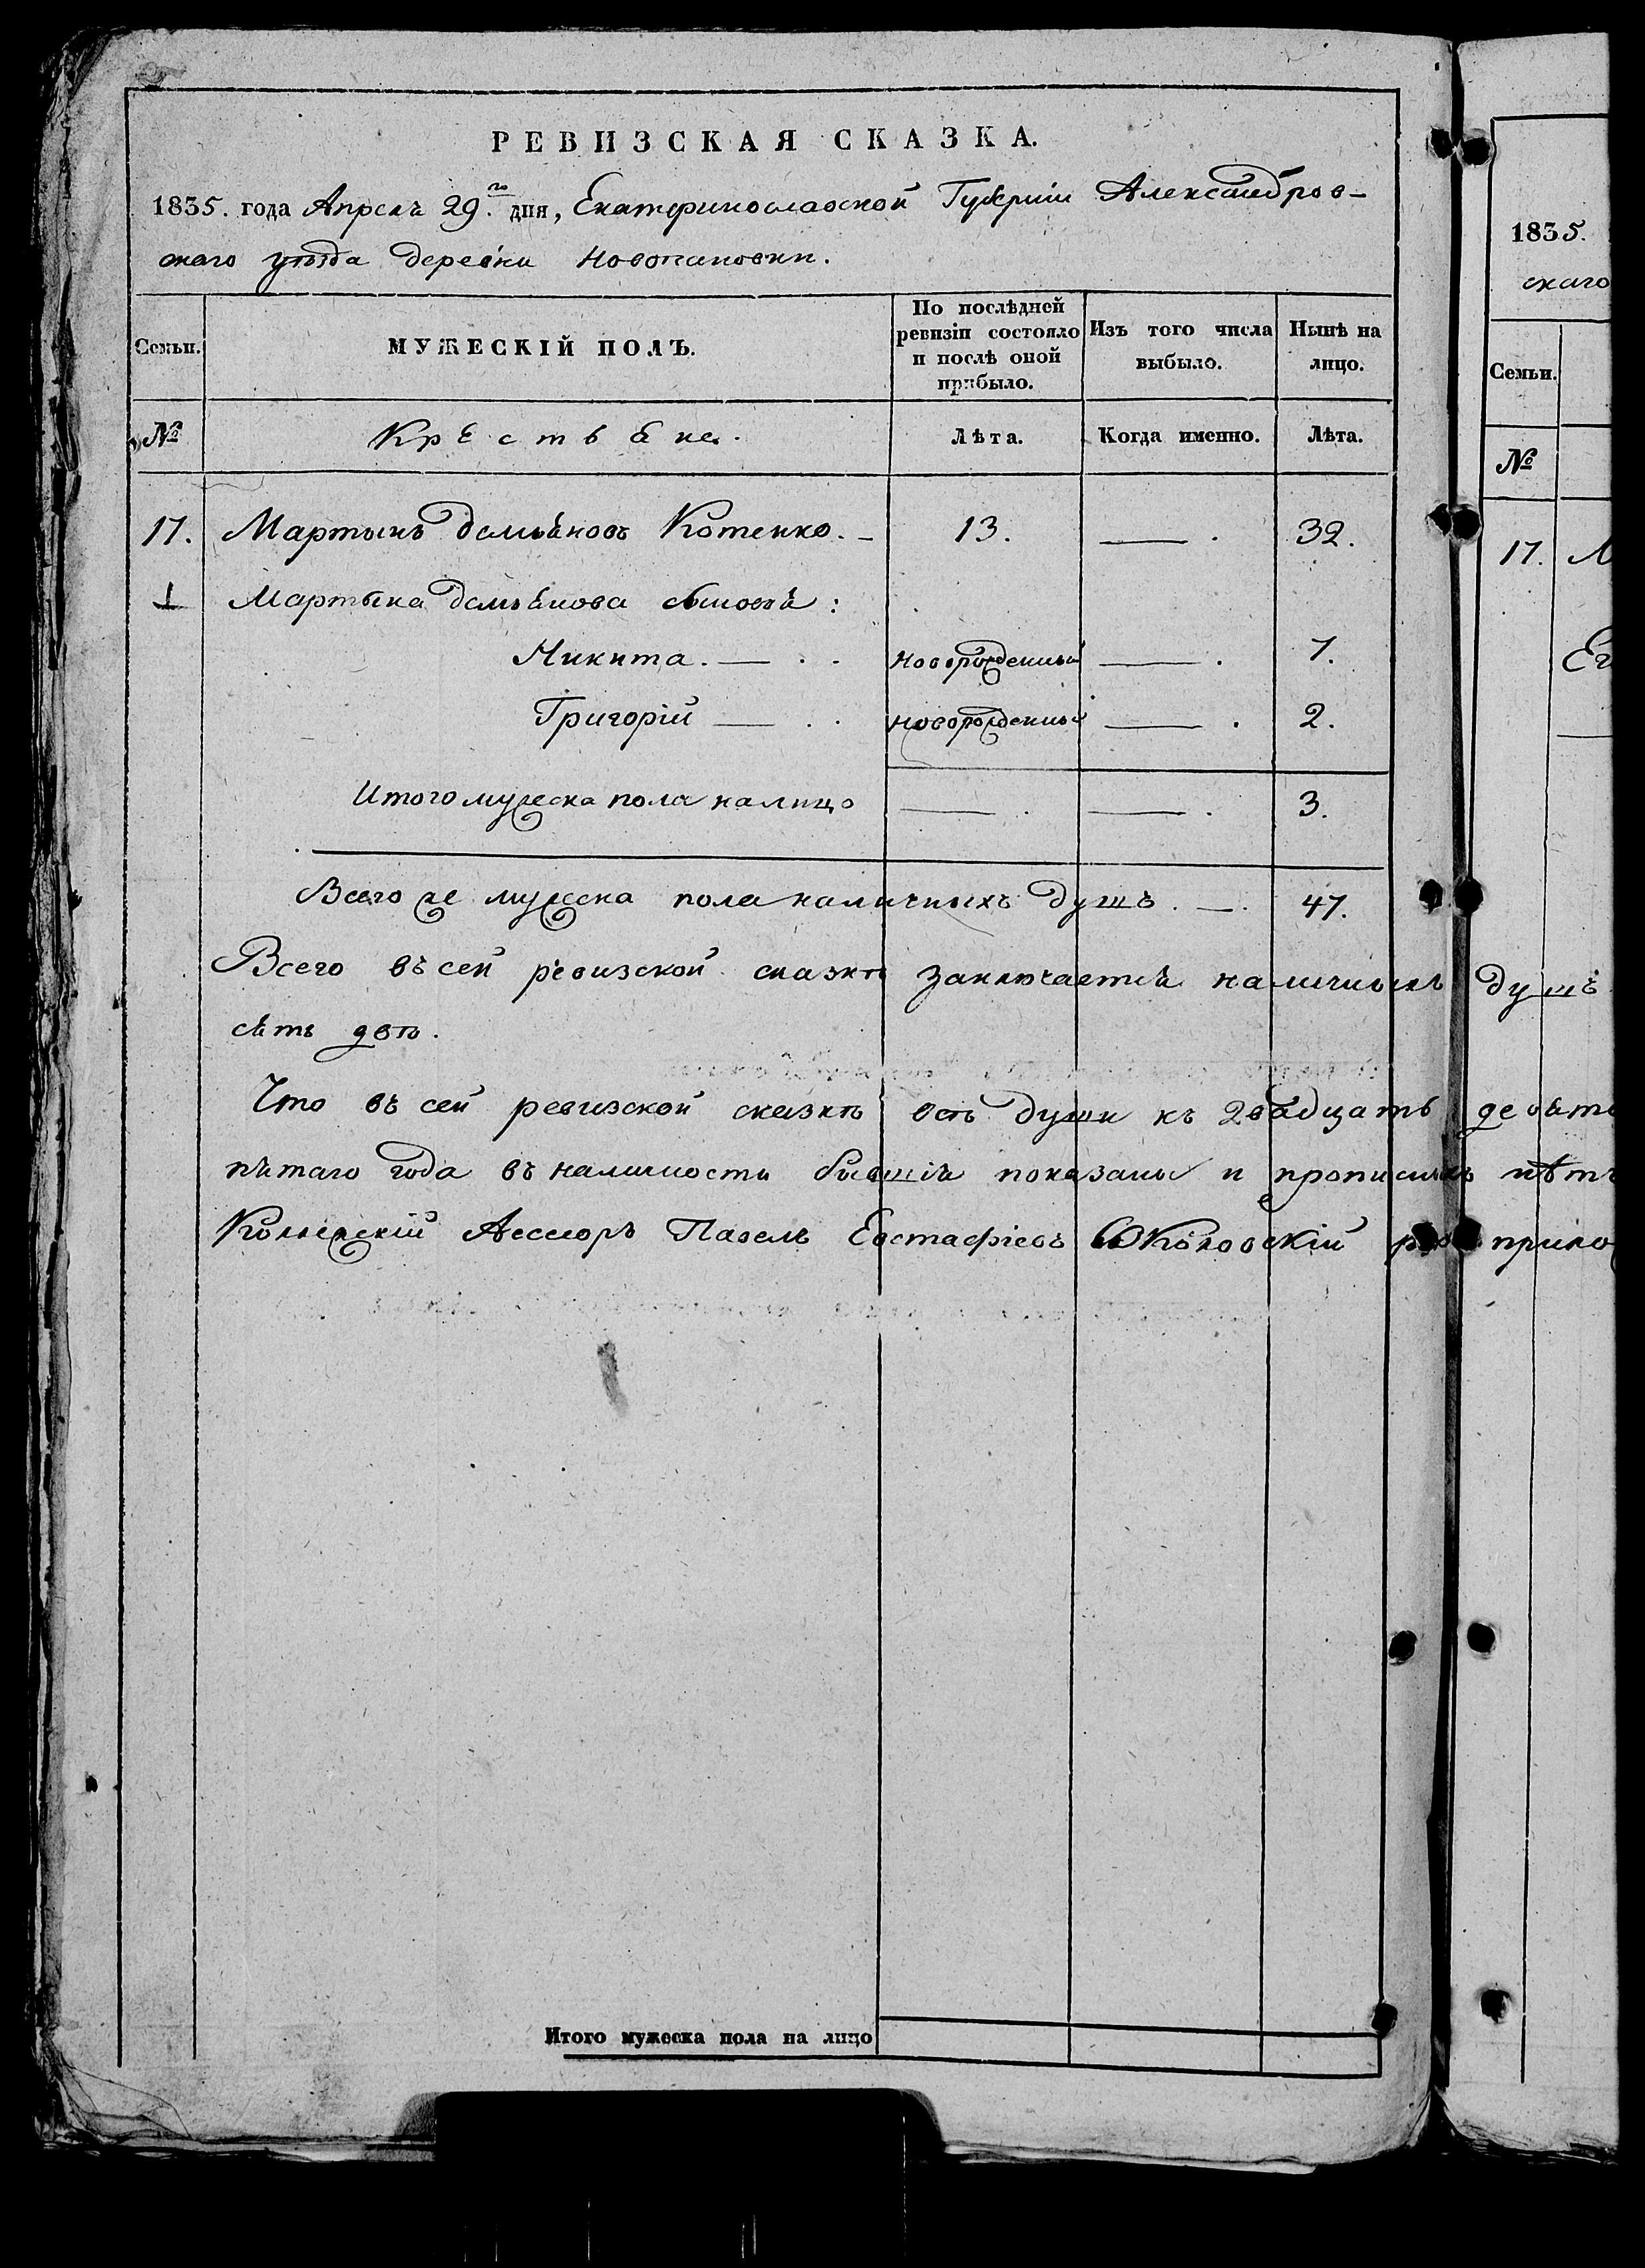 РЕВИЗСКАЯ СКАЗКА.
1835. года Апреля 29.го дня, Екатеринославской Губерніи Александров-
скаго уѣзда деревни Новопановки.
Семьи.
МУЖЕСКІЙ ПОЛЪ.
По послѣдней ревизіи состояло и послѣ оной прибыло.
Изъ того числа выбыло.
Нынѣ на лицо.
№ Крестьяне. Лѣта. Когда именно. Лѣта.
17. Мартынъ Демьяновъ Котенко. — 13. — . 32.
1 Мартына Демьянова сыновья :
Никита. — . . новорожденный — . 7.
Григорій — . . новорожденный — . 2.
Итого мужеска пола налицо — . — . 3.
Всего же мужеска пола наличныхъ душъ . — . 47.
Всего въ сей ревизской сказкѣ заключается наличныхъ душъ
сятъ двѣ.
Что въ сей ревизской сказкѣ всѣ души къ двадцать девято
пятаго года въ наличности бывшія показаны и прописныхъ нѣтъ
Коллежскій Асессоръ Павелъ Евстафіевъ прило
Итого мужеска пола на лицо
1835.
скаго
Семьи.
№
17. М
Ег